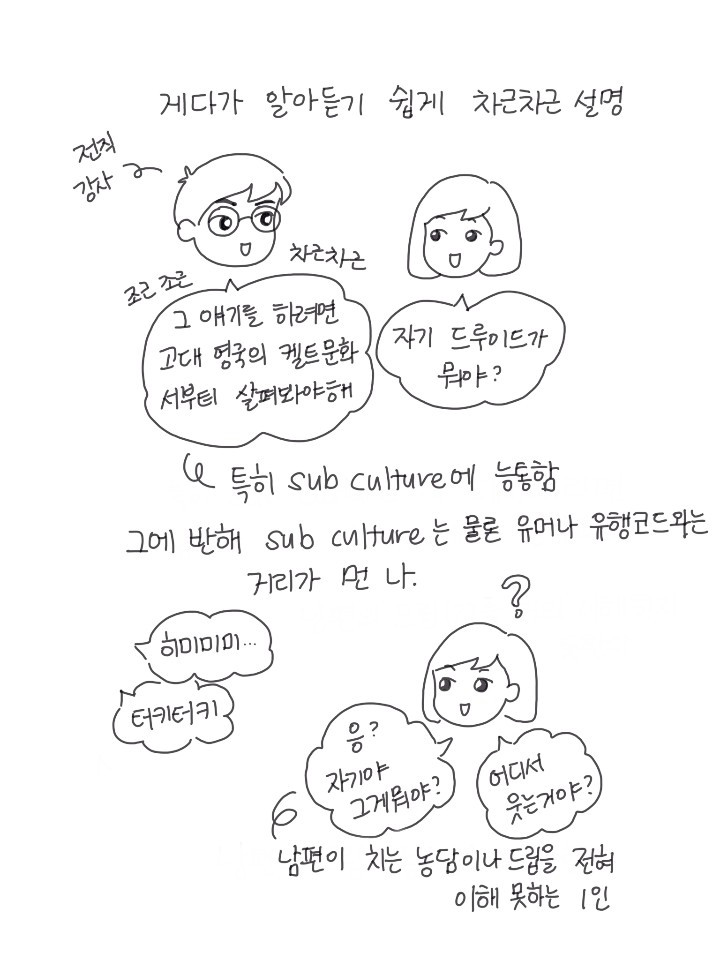 게다가 알아듣기 쉽게 차근차근 설명
전직
강사
조근조근
차근차근
그 얘기를 하려면
고대 영국의 켈트문화
서부터 살펴봐야해
자기 드루이드가
뭐야?
특히 sub culture에 능통함
그에 반해 sub culture는 물론 유머나 유행코드와는
거리가 먼 나.
?
히미미미...
터키터키
응?
자기야
그게뭐야?
어디서
웃는거야?
남편이 치는 농담이나 드립을 전혀
이해 못하는 1인